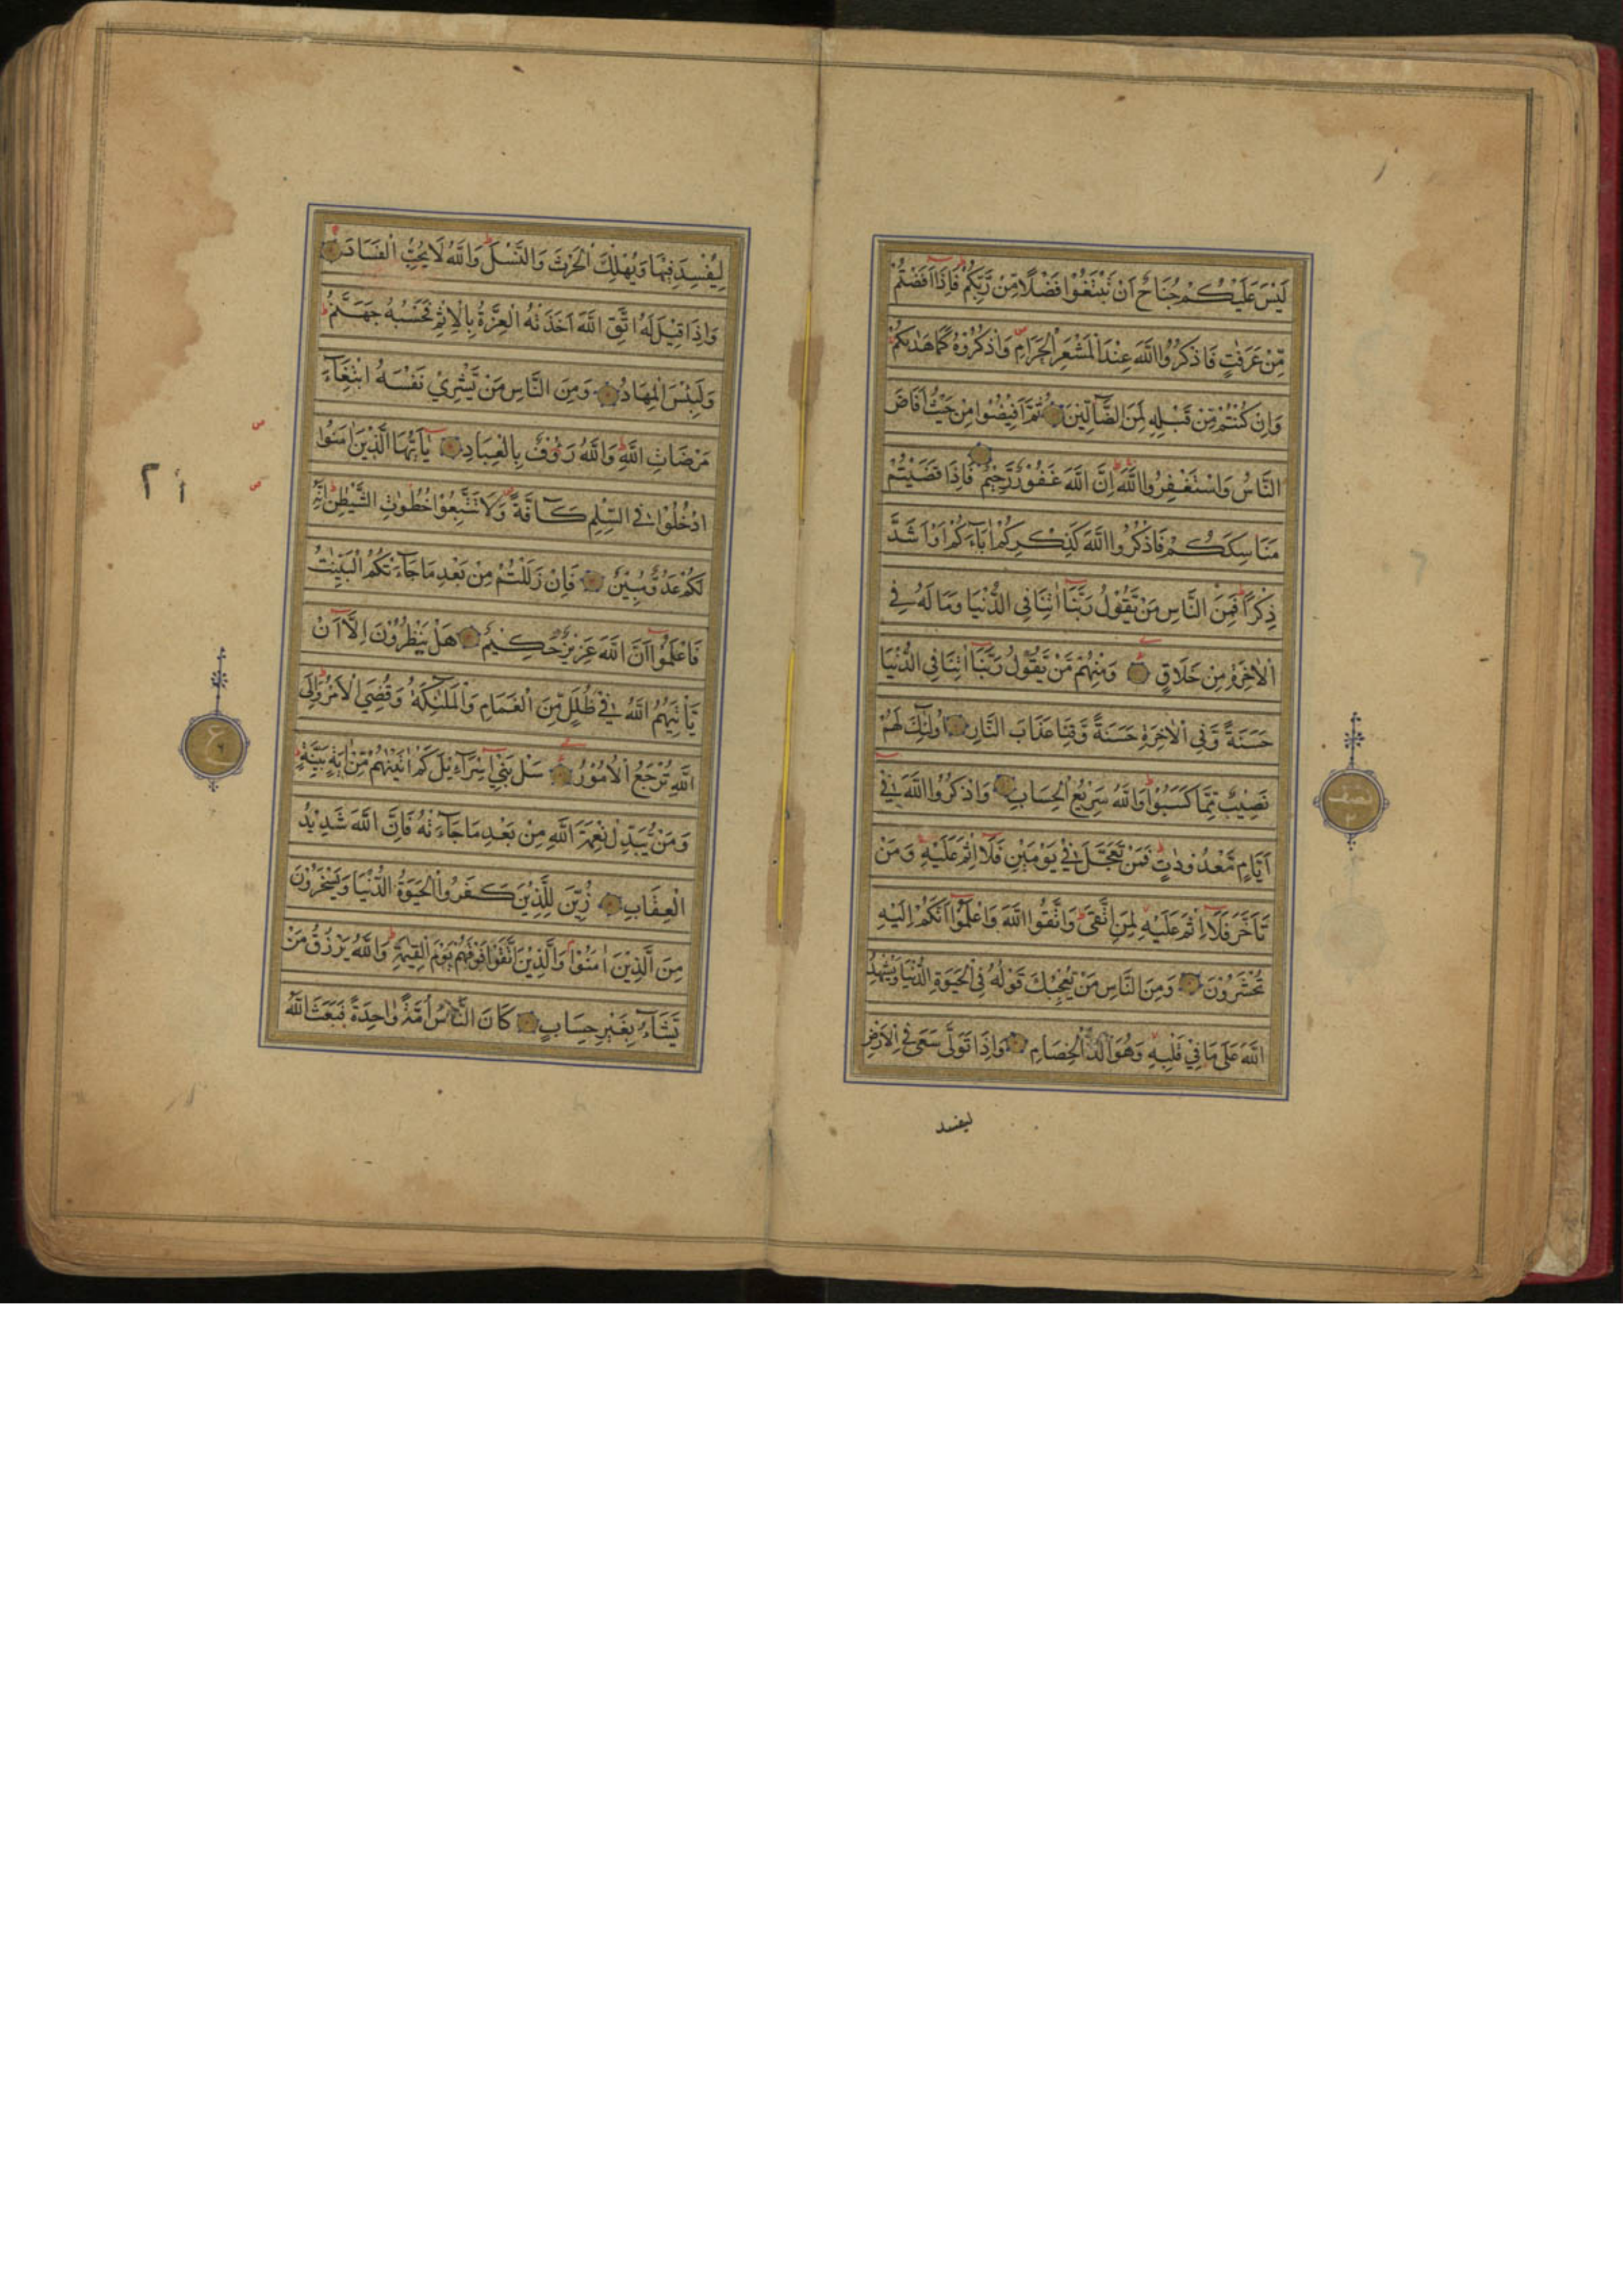 لَيْسَ عَلَيْكُمْ جُنَاحٌ اَنْ تَبْتَغُوْا فَضْلًا مِّنْ رَّبِّكُمْ فَاِذَا اَفَضْتُمْ
مِّنْ عَرَفٰتٍ فَاذْكُرُوا اللّٰهَ عِنْدَ الْمَشْعَرِ الْحَرَامِ وَاذْكُرُوْهُ كَمَا هَدٰىكُمْ
وَاِنْ كُنْتُمْ مِّنْ قَبْلِهٖ لَمِنَ الضَّآلِّيْنَ ثُمَّ اَفِيْضُوْا مِنْ حَيْثُ اَفَاضَ
النَّاسُ وَاسْتَغْفِرُوا اللّٰهَ اِنَّ اللّٰهَ غَفُوْرٌ رَّحِيْمٌ فَاِذَا قَضَيْتُمْ
مَنَاسِكَكُمْ فَاذْكُرُوا اللّٰهَ كَذِكْرِكُمْ اٰبَآءَكُمْ اَوْ اَشَدَّ
ذِكْرًا فَمِنَ النَّاسِ مَنْ يَّقُوْلُ رَبَّنَا اٰتِنَا فِي الدُّنْيَا وَمَا لَهٗ فِي
الْاٰخِرَةِ مِنْ خَلَاقٍ وَمِنْهُمْ مَّنْ يَّقُوْلُ رَبَّنَا اٰتِنَا فِي الدُّنْيَا
حَسَنَةً وَّفِي الْاٰخِرَةِ حَسَنَةً وَّقِنَا عَذَابَ النَّارِ اُولٰٓئِكَ لَهُمْ
نَصِيْبٌ مِّمَّا كَسَبُوْا وَاللّٰهُ سَرِيْعُ الْحِسَابِ وَاذْكُرُوا اللّٰهَ فِيْ
اَيَّامٍ مَّعْدُوْدٰتٍ فَمَنْ تَعَجَّلَ فِيْ يَوْمَيْنِ فَلَا اِثْمَ عَلَيْهِ وَمَنْ
تَاَخَّرَ فَلَا اِثْمَ عَلَيْهِ لِمَنِ اتَّقٰى وَاتَّقُوا اللّٰهَ وَاعْلَمُوْا اَنَّكُمْ اِلَيْهِ
تُحْشَرُوْنَ وَمِنَ النَّاسِ مَنْ يُّعْجِبُكَ قَوْلُهٗ فِي الْحَيٰوةِ الدُّنْيَا وَيُشْهِدُ
اللّٰهَ عَلٰى مَا فِيْ قَلْبِهٖ وَهُوَ اَلَدُّ الْخِصَامِ وَاِذَا تَوَلّٰى سَعٰى فِي الْاَرْضِ
ليفسد
نصف
٢
لِيُفْسِدَ فِيْهَا وَيُهْلِكَ الْحَرْثَ وَالنَّسْلَ وَاللّٰهُ لَا يُحِبُّ الْفَسَادَ
وَاِذَا قِيْلَ لَهُ اتَّقِ اللّٰهَ اَخَذَتْهُ الْعِزَّةُ بِالْاِثْمِ فَحَسْبُهٗ جَهَنَّمُ
وَلَبِئْسَ الْمِهَادُ وَمِنَ النَّاسِ مَنْ يَّشْرِيْ نَفْسَهُ ابْتِغَآءَ
مَرْضَاتِ اللّٰهِ وَاللّٰهُ رَءُوْفٌ بِالْعِبَادِ يٰٓاَيُّهَا الَّذِيْنَ اٰمَنُوا
ادْخُلُوْا فِي السِّلْمِ كَآفَّةً وَّلَا تَتَّبِعُوْا خُطُوٰتِ الشَّيْطٰنِ اِنَّهٗ
لَكُمْ عَدُوٌّ مُّبِيْنٌ فَاِنْ زَلَلْتُمْ مِنْ بَعْدِ مَا جَآءَتْكُمُ الْبَيِّنٰتُ
فَاعْلَمُوْا اَنَّ اللّٰهَ عَزِيْزٌ حَكِيْمٌ هَلْ يَنْظُرُوْنَ اِلَّا اَنْ
يَّاْتِيَهُمُ اللّٰهُ فِيْ ظُلَلٍ مِّنَ الْغَمَامِ وَالْمَلٰٓئِكَةُ وَقُضِيَ الْاَمْرُ وَاِلَى
اللّٰهِ تُرْجَعُ الْاُمُوْرُ سَلْ بَنِيْ اِسْرَآءِيْلَ كَمْ اٰتَيْنٰهُمْ مِّنْ اٰيَةٍ بَيِّنَةٍ
وَمَنْ يُّبَدِّلْ نِعْمَةَ اللّٰهِ مِنْ بَعْدِ مَا جَآءَتْهُ فَاِنَّ اللّٰهَ شَدِيْدُ
الْعِقَابِ زُيِّنَ لِلَّذِيْنَ كَفَرُوا الْحَيٰوةُ الدُّنْيَا وَيَسْخَرُوْنَ
مِنَ الَّذِيْنَ اٰمَنُوْا وَالَّذِيْنَ اتَّقَوْا فَوْقَهُمْ يَوْمَ الْقِيٰمَةِ وَاللّٰهُ يَرْزُقُ مَنْ
يَّشَآءُ بِغَيْرِ حِسَابٍ كَانَ النَّاسُ اُمَّةً وَّاحِدَةً فَبَعَثَ اللّٰهُ
ع